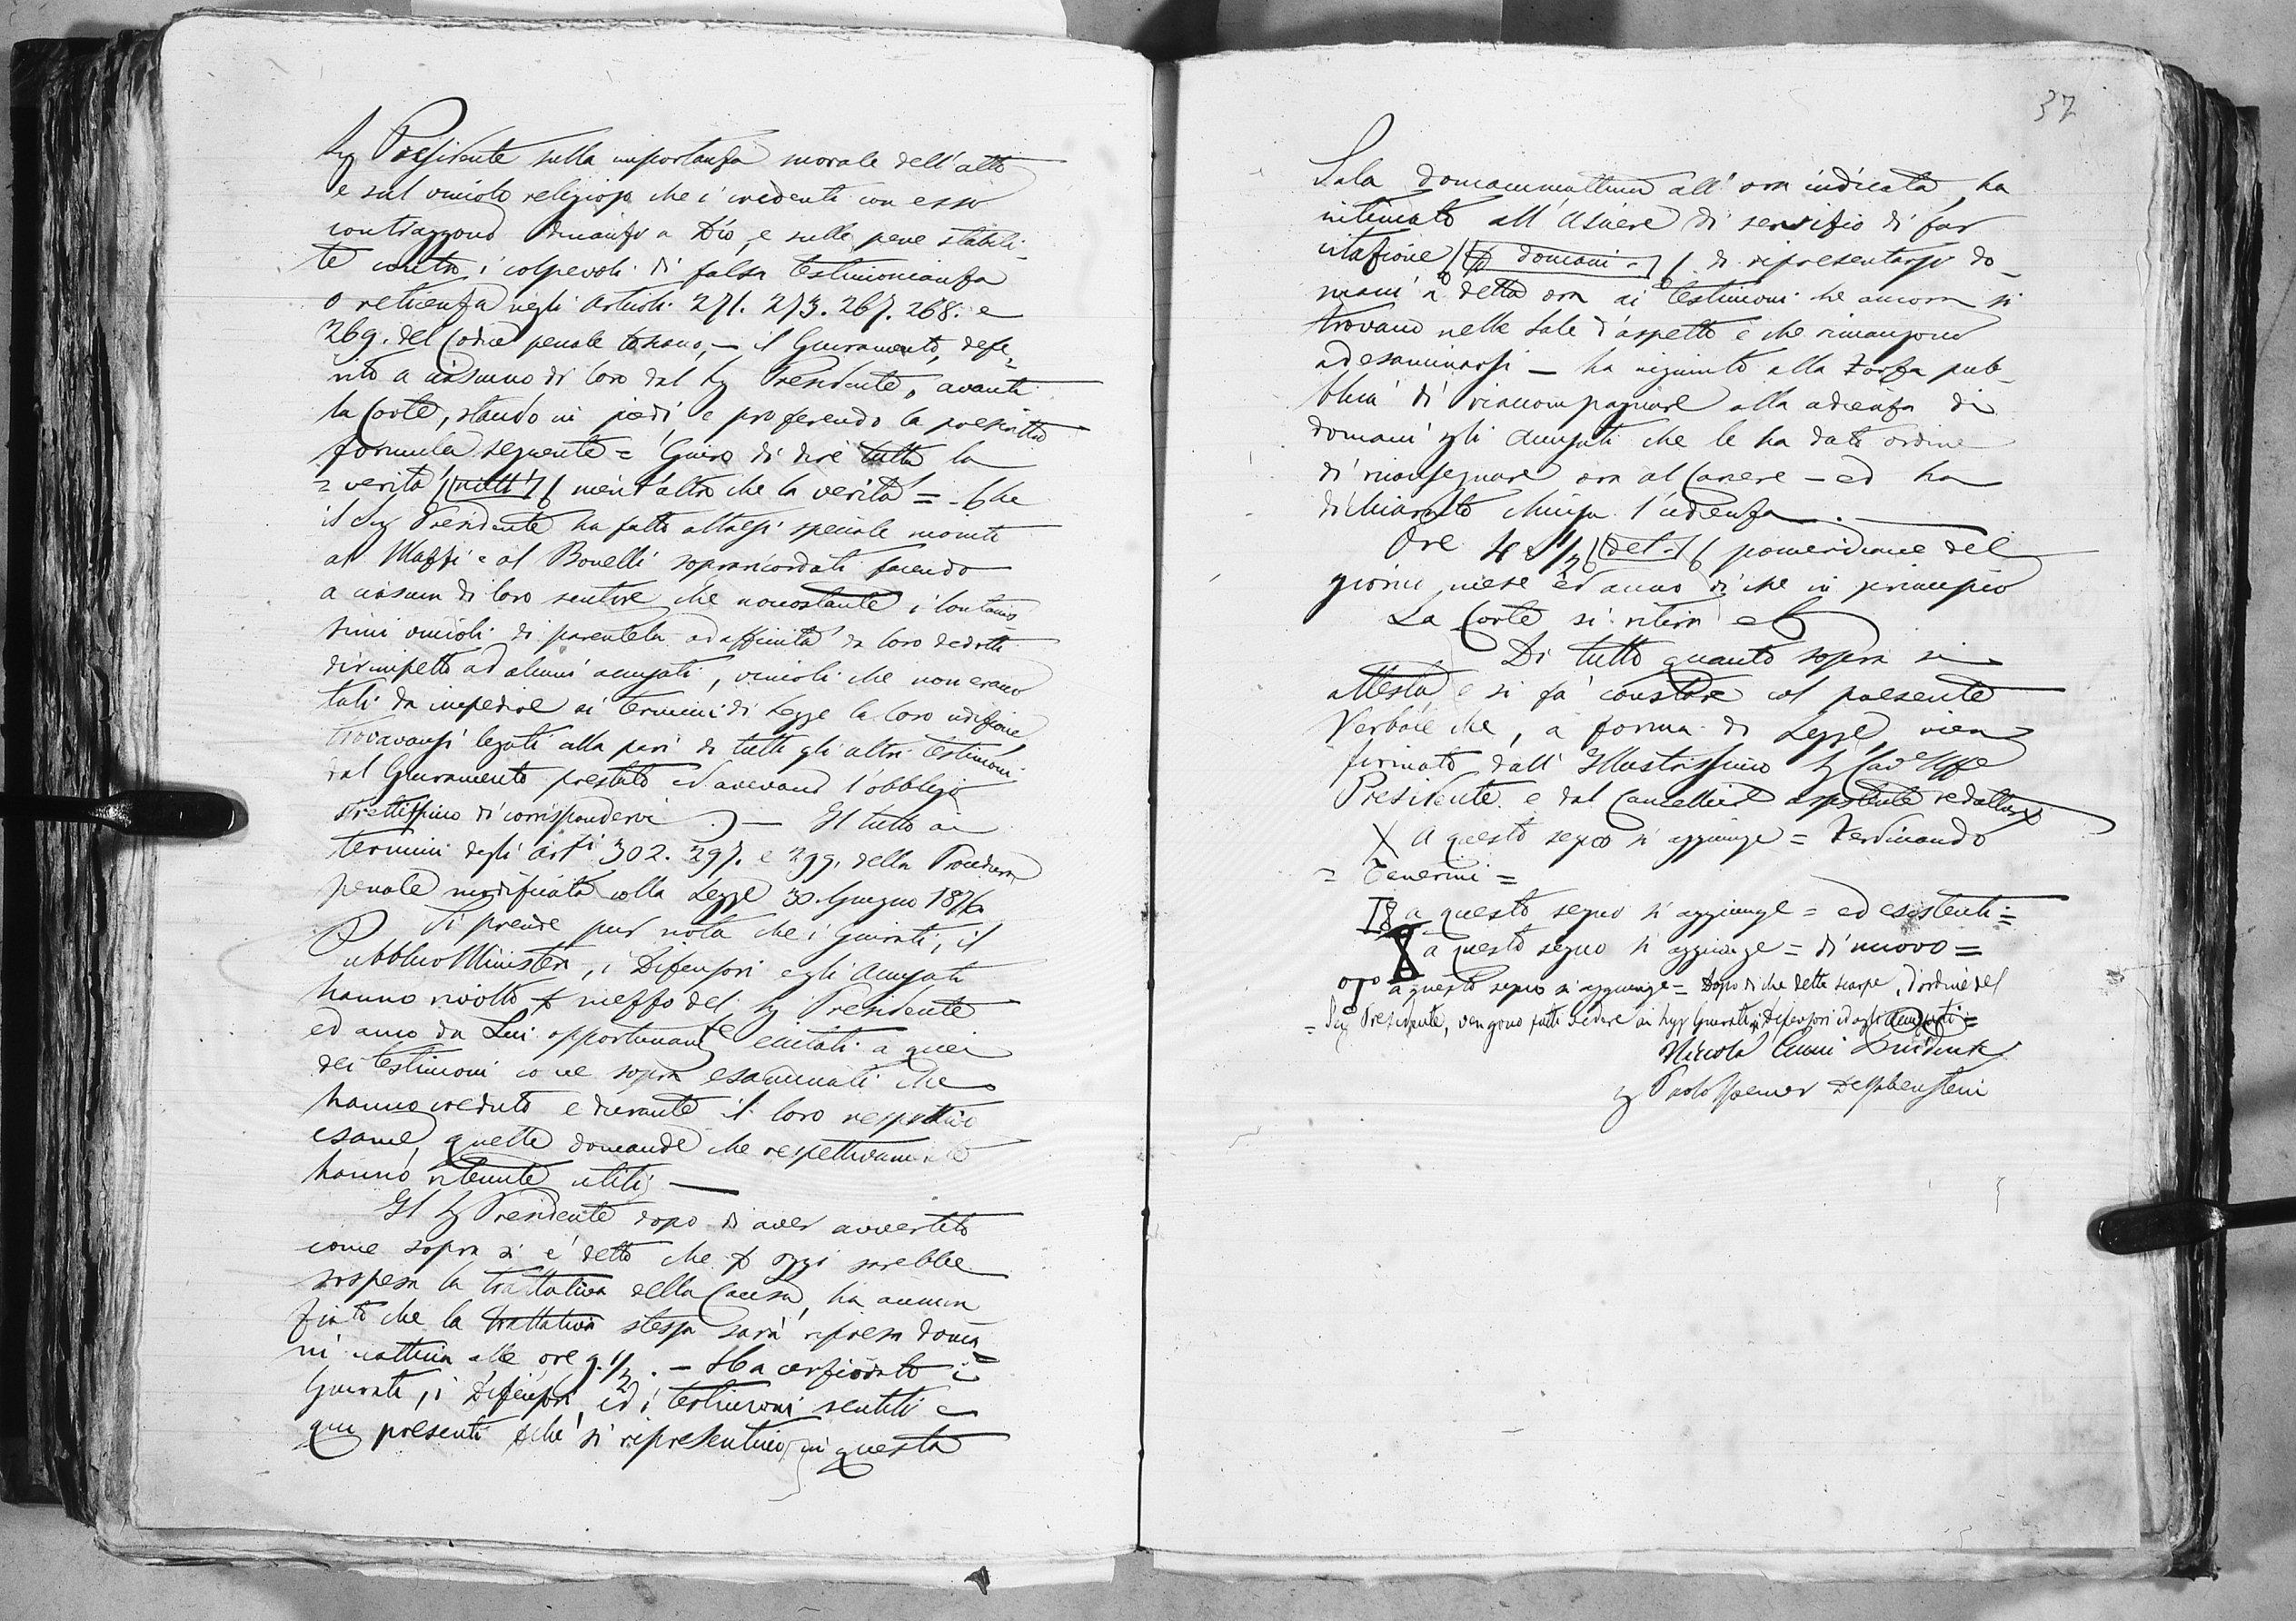 Sig Presidente sulla importanza morale dell'atto
e sul vincolo religioso che i credenti con esso
contraggono dinanzi a Dio, e sulle pene stabili-
te contro i colpevoli di falsa testimonianza
o reticenza negli articoli 271. 273. 267. 268. e
269. del Codice penale toscano, — il Giuramento, defe-
rito a ciascuno di loro dal Sig Presidente, avanti
la Corte, stando in piedi, e proferendo la prescritta
formula seguente = Giuro di dire tutta la
= verità null' nient'altro che la verità = - Che
il Sig Presidente ha fatto altresì speciale monito
al Mazzi e al Bonelli sopraricordati facendo
a ciascun di loro sentire che nonostante i lontanis
simi vincoli di parentela ad affinità da loro dedotti
dirimpetto ad alcuni accusati, vincoli che non erano
tali da impedire ai termini di Legge la loro udizione
trovavansi legati alla pari di tutti gli altri testimoni
dal Giuramento prestato ed avevano l'obbligo
strettissimo di corrispondervi. — Il tutto ai
termini degli arti 302. 297. e 299. della Procedura
penale modificata colla Legge 30. Giugno 1876.
Si prende pur nota che i Giurati, il
Pubblico Ministero, i Difensori e gli Accusati
hanno rivolto p mezzo del Sig Presidente
ed anco da Lui opportunamte eccitati a quei
dei testimoni come sopra esaminati che
hanno creduto e durante il loro respettivo
esame, quelle domande che respettivamente
hanno ritenute utili; —
Il Sig Presidente dopo di aver avvertito
come sopra si è detto che p oggi sarebbe
sospesa la trattativa della Causa, ha annun
ziato che la trattativa stessa sarà ripresa doma
ni mattina alle ore 9. 1/2. — Ha cerziorato i
Giurati, i Difensori, ed i testimoni sentiti e
qui presenti pchè si ripresentino in questa
37
Sala domammattina all'ora indicata, ha
intimato all'Usciere di servizio di far
citazione p domani - di ripresentarsi do-
mani a detta ora ai testimoni che ancora si
trovano nelle Sale d'aspetto e che rimangono
ad esaminarsi — ha ingiunto alla Forza pub-
blica di riaccompagnare alla udienza di
domani gli accusati che le ha dato ordine
di riconsegnare ora al Carcere — ed ha
dichiarato chiusa l'udienza. —
Ore 4 e 1/2 del - pomeridiane del
giorno mese ed anno di che in principio
La Corte si ritira e
Di tutto quanto sopra si
attesta e si fa constare col presente
Verbale che, a forma di Legge, vien
firmato dall' Illustrissimo Sig Cave Uffe
Presidente e dal Cancelliere assistente redattore X
X a questo segno si aggiunge = Ferdinando
= Tenerini =
a questo segno si aggiunge = ed esistenti =
a questo segno si aggiunge = di nuovo =
a questo segno si aggiunge = Dopo di che dette scarpe, d'ordine del
= Sig Presidente, vengono fatte vedere ai Sigg Giurati ai Difensori ed agli Accusati =
Niccola Presidente
Paolo